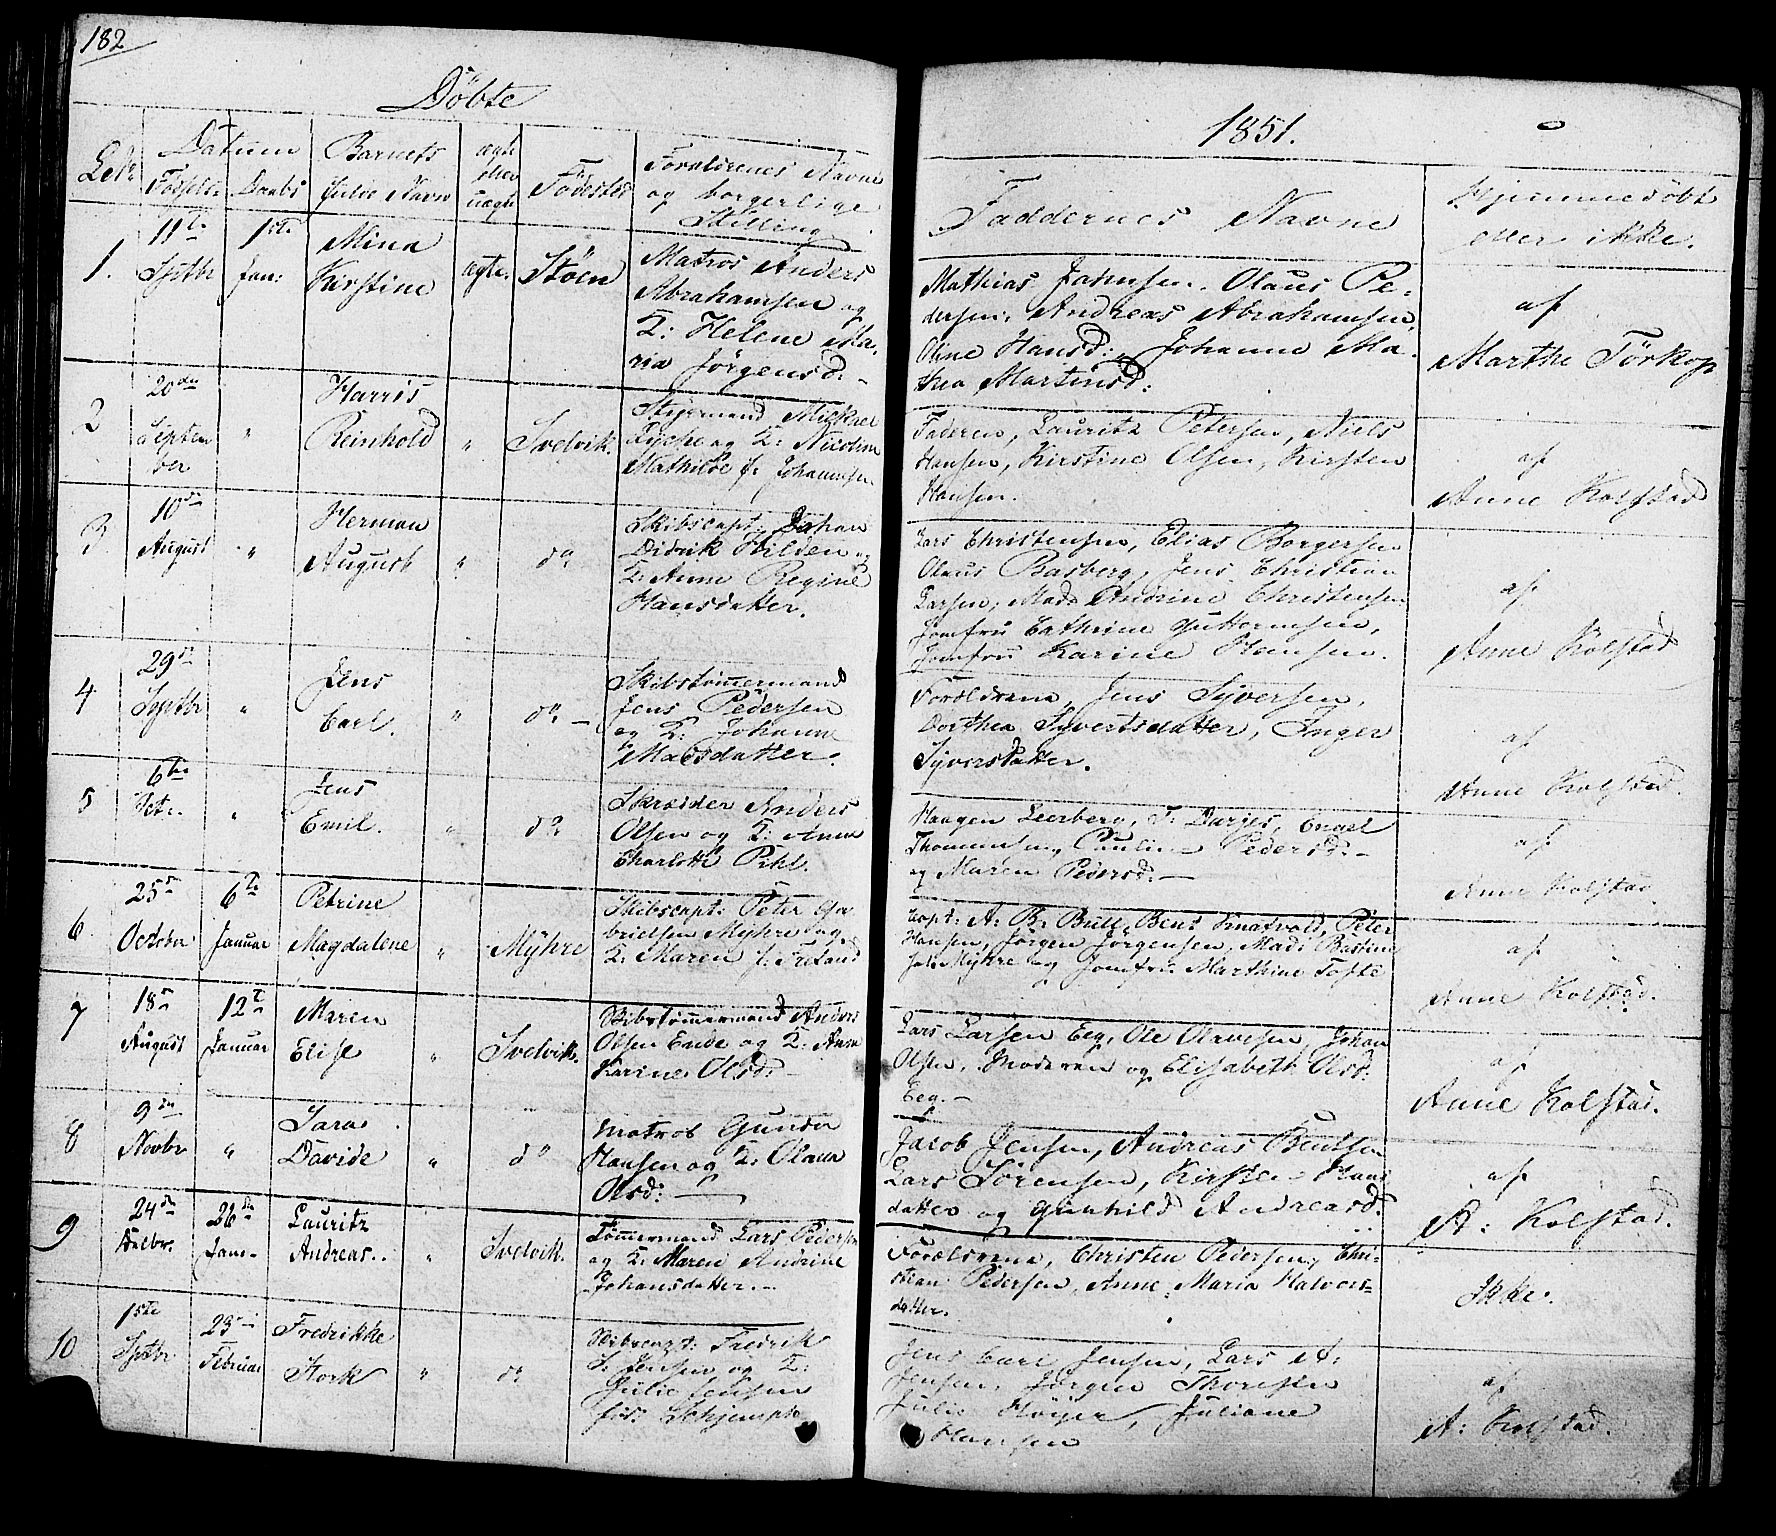 182
Döbte
1851.
Datum
Fødsels. Daabs
Barnets
fulde Navn
ægte
eller
uægte
Födested
Forældrenes Navne
og borgerlige
Stilling
Faddernes Navne
Hjemmedöbt
eller ikke.
1.
11te
Septbr
1ste
Jan:
Mina
Kirstine
ægte.
Støen
Matros Anders
Abrahamsen og
K: Helene Ma,
ria Jörgensd: -
Mathias Jansen, Olaus Pe-
dersen, Andreas Abrahamsen,
Oline Hansd:, Johanne Ma-
thea Martinsd:
af
Marthe Törkop
2
20de
Septem
ber
"
Harris
Reinhold
"
Svelvik.
Styrmand Mickael
og K: Nicoline
Mathilde f: Johannsen
Faderen, Lauritz Petersen, Niels
Hansen, Kirstine Olsen, Kirsten
Hansen.
af
Anne Kolstad
3.
10de
August
"
Herman
August
"
do
Skibscapt: Johan
Didrik Hilden og
K: Anne Regine
Hansdatter.
Lars Christensen, Elias Borgersen
Olaus Basberg, Jens Christian
Larsen, Mad: Andrine Christensen
Jomfru Cathrine Guttormsen,
Jomfru Karine Hansen.
af
Anne Kolstad
4.
29de
Septbr
"
Jens
Carl.
"
do -
Skibstømmermand
Jens Pedersen
og K: Johanne
Madsdatter.
Forældrene, Jens Syversen,
Dorthea Syvertsdatter, Inger
Syversdatter.
af
Anne Kolstad.
5
6te
Octr.
"
Jens
Emil.
"
do
Skrædder Anders
Olsen og K: Anne
Charlotte Pihl.
Haagen Leerberg, T: Darjes, Engel
Thommesen, Pauline Pedersd: -
og Maren Pedersd: -
af
Anne Kolstad
6.
25de
October
6te
Januar
Petrine
Magdalene
"
Myhre
Skibscapt: Peter Ga
brielsen Myhre og
K: Maren f: Tretand
Capt: A: B: Bull, Bent Knatvold, Peter
Hansen, Jörgen Jörgensen, Mad: Bastine
Myhre og Jomfru Marthine Tofte
af
Anne Kolstad.
7
18de
August
12te
Januar
Maren
Elise
"
Svelvik.
Skibstømmermand Anders
Olsen Ende og K: Anne
Karine Olsd: -
Lars Larsen Eeg, Ole Olavesen, Johan
Olsen, Moderen og Elisabeth Olsd:
Eeg. -
af
Anne Kolstad.
8
9de
Novbr
"
Sara
Davide
"
do
Matros Gunder
Hansen og K: Olava
Olsd: -
Jacob Jensen, Andreas Bentsen
Lars Sörensen, Kirsten Hans
datter og Gunhild Andreasd.
af
A: Kolstad.
9
24de
26de
Jan -
Lauritz
Andreas.
"
Svelvik.
Tømmermand Lars Pedersen
og K: Maren Andrine
Johansdatter. -
Forældrene, Christen Pedersen, Chri-
stian Pedersen, Anne Maria Halvors-
datter.
Ikke.
10
1ste
Septbr
23de
Februar
Fredrikke
Stork
"
do
Skibscapt: Fredrik
S. Jensen og K:
Julie Jensen
föd: Schjempk
Jens Carl Jensen, Lars A:
Jensen, Jörgen Thoresen
Julie Höyer, Juliane
Hansen
af
A: Kolstad.